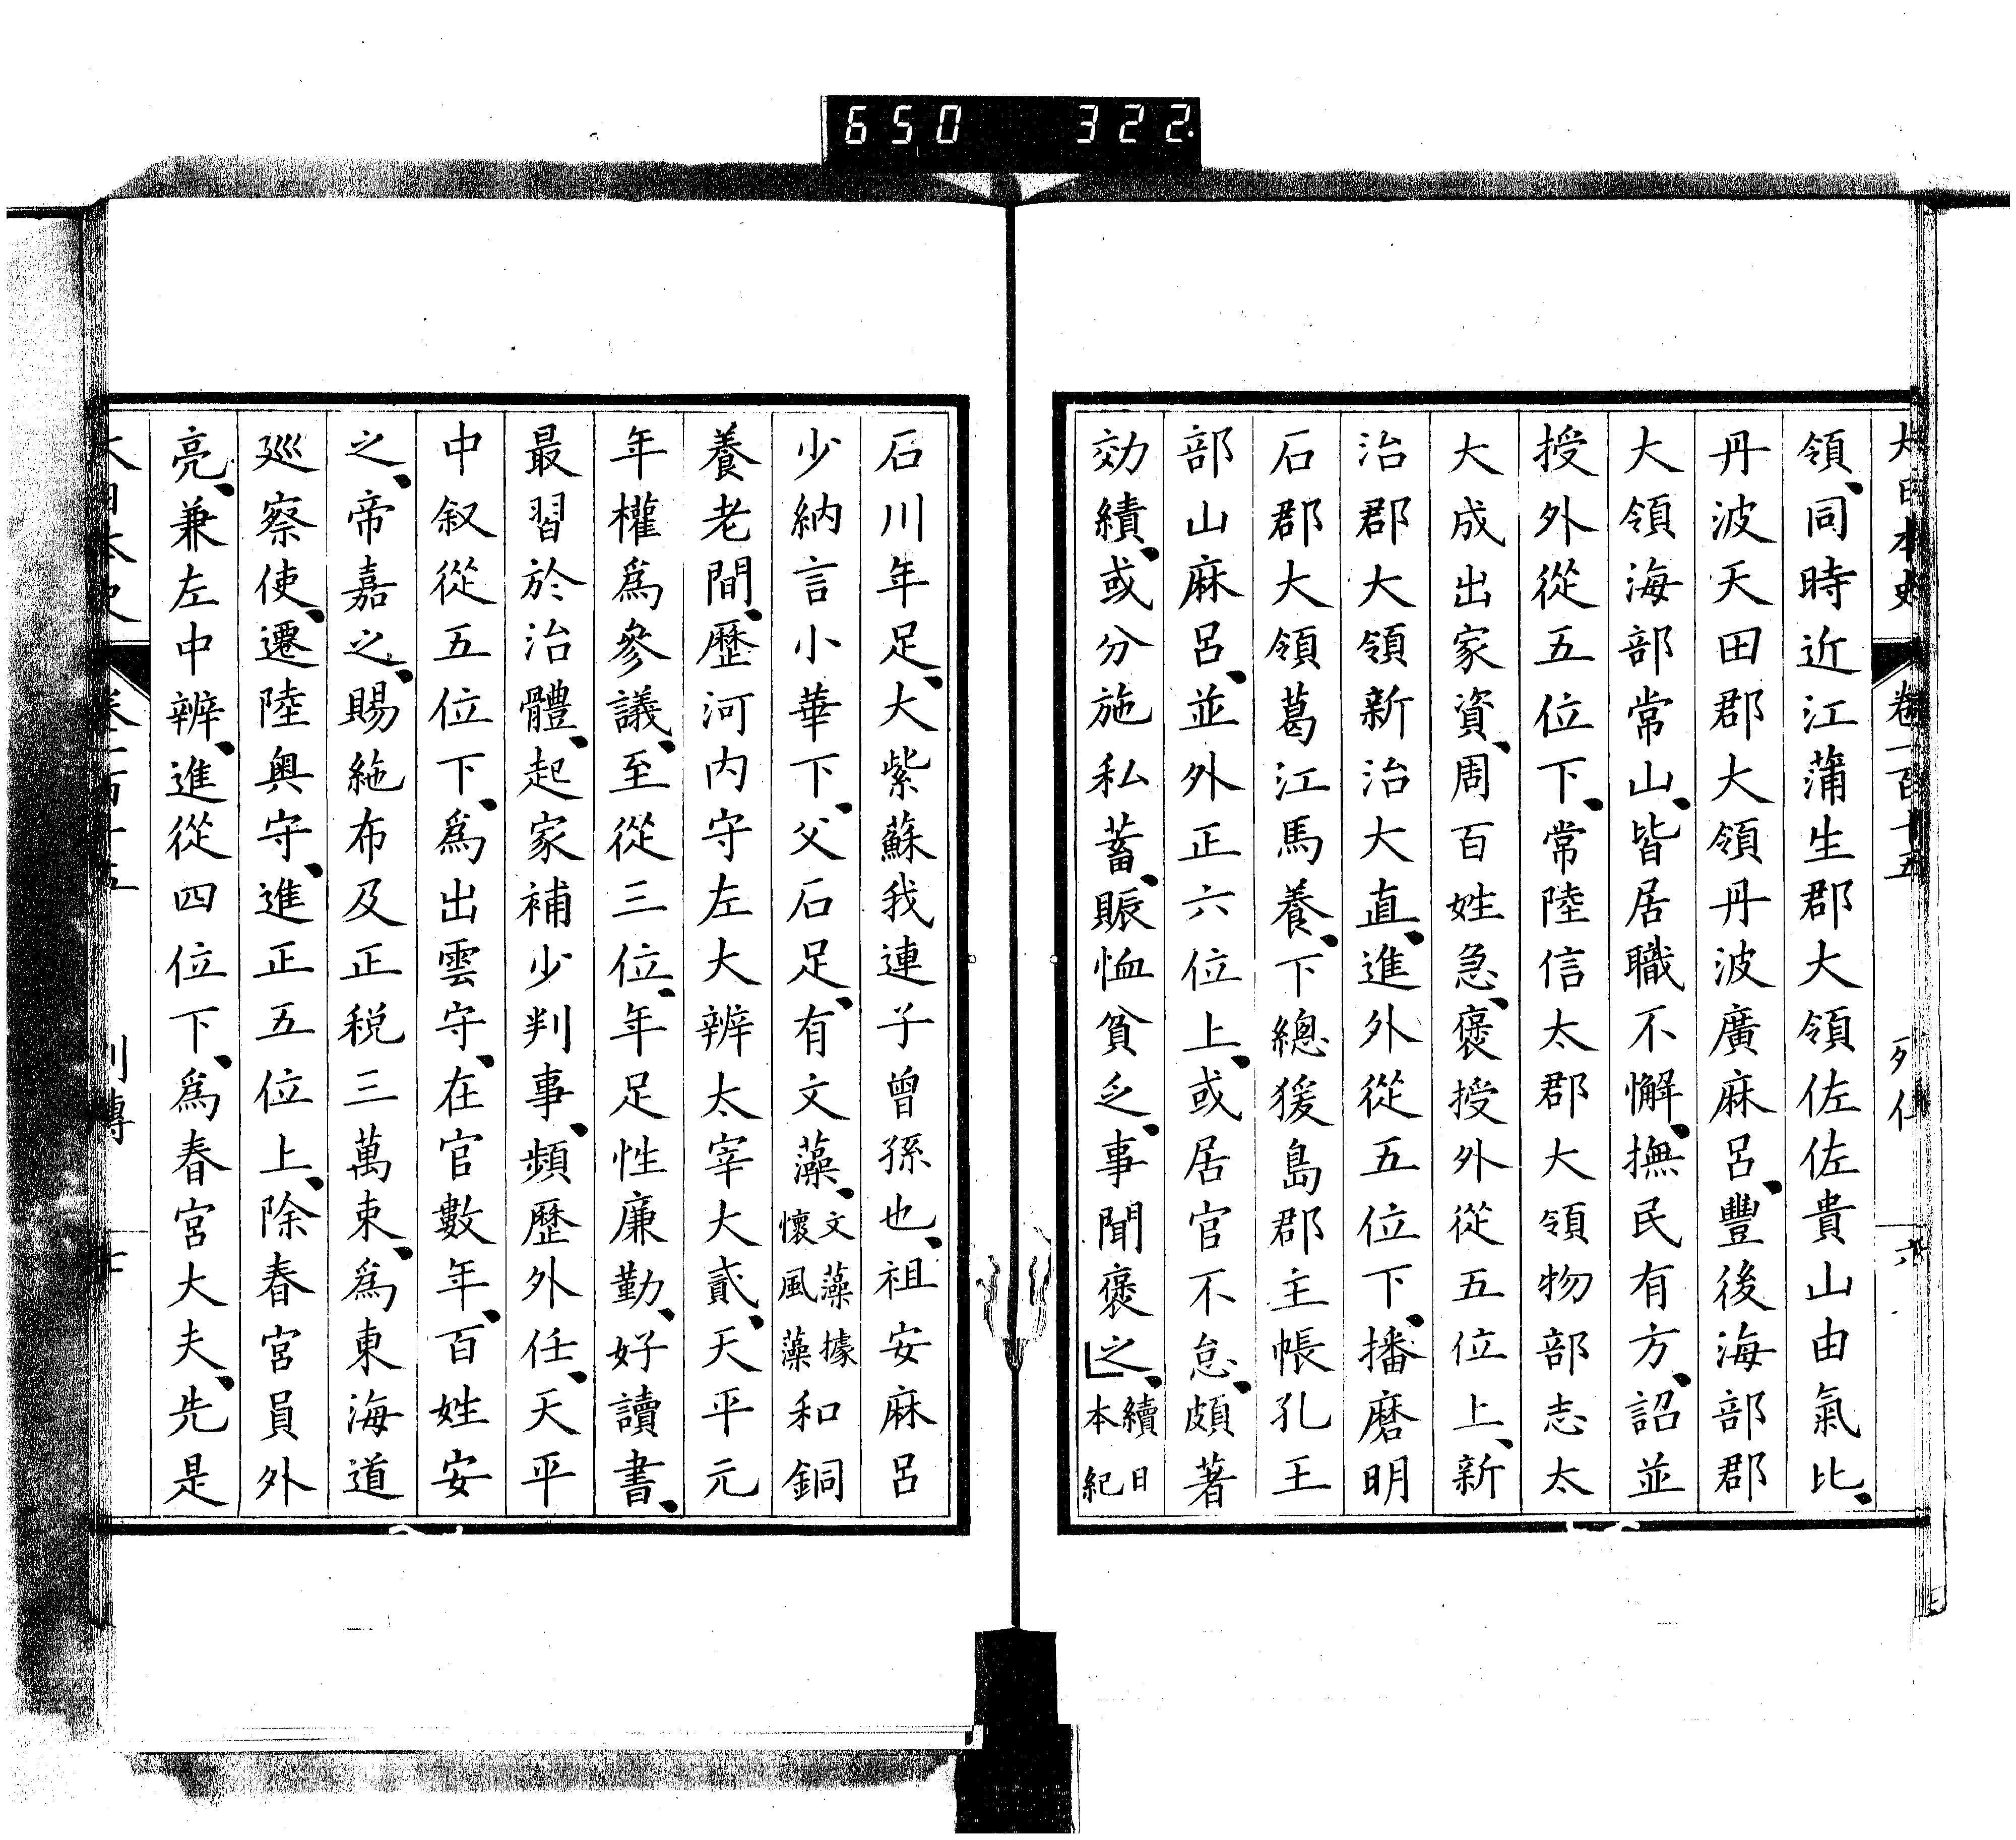 650 322
大日本史 卷一百十五 六
領、同時近江蒲生郡大領佐佐貴山由氣比、
丹波天田郡大領丹波廣麻呂、豐後海部郡
大領海部常山、皆居職不懈、撫民有方、詔並
授外從五位下、常陸信太郡大領物部志太
大成出家資、周百姓急、褒授外從五位上、新
治郡大領新治大直、進外從五位下、播磨明
石郡大領葛江馬養、下總猨島郡主帳孔王
部山麻呂、並外正六位上、或居官不怠、頗著
効績、或分施私蓄、賑恤貧乏、事聞褒之、續日本紀
石川年足、大紫蘇我連子曾孫也、祖安麻呂
少納言小華下、父石足、有文藻、文藻據懷風藻和銅
養老間、歷河内守左大辨太宰大貳、天平元
年權爲參議、至從三位、年足性廉勤、好讀書、
最習於治體、起家補少判事、頻歷外任、天平
中叙從五位下、爲出雲守、在官數年、百姓安
之、帝嘉之、賜絁布及正税三萬束、爲東海道
巡察使、遷陸奥守、進正五位上、除春宮員外
亮、兼左中辨、進從四位下、爲春宮大夫、先是